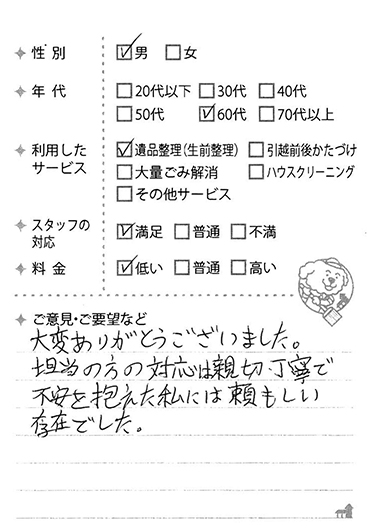 性別 ☑男 □女
年代 □20代以下 □30代 □40代
□50代 ☑60代 □70代以上
利用した
サービス
☑遺品整理(生前整理) □引越前後かたづけ
□大量ごみ解消 □ハウスクリーニング
□その他サービス
スタッフの
対応
☑満足 □普通 □不満
料金 ☑低い □普通 □高い
ご意見・ご要望など
大変ありがとうございました。
担当の方の対応は親切、丁寧で
不安を抱えた私には頼もしい
存在でした。